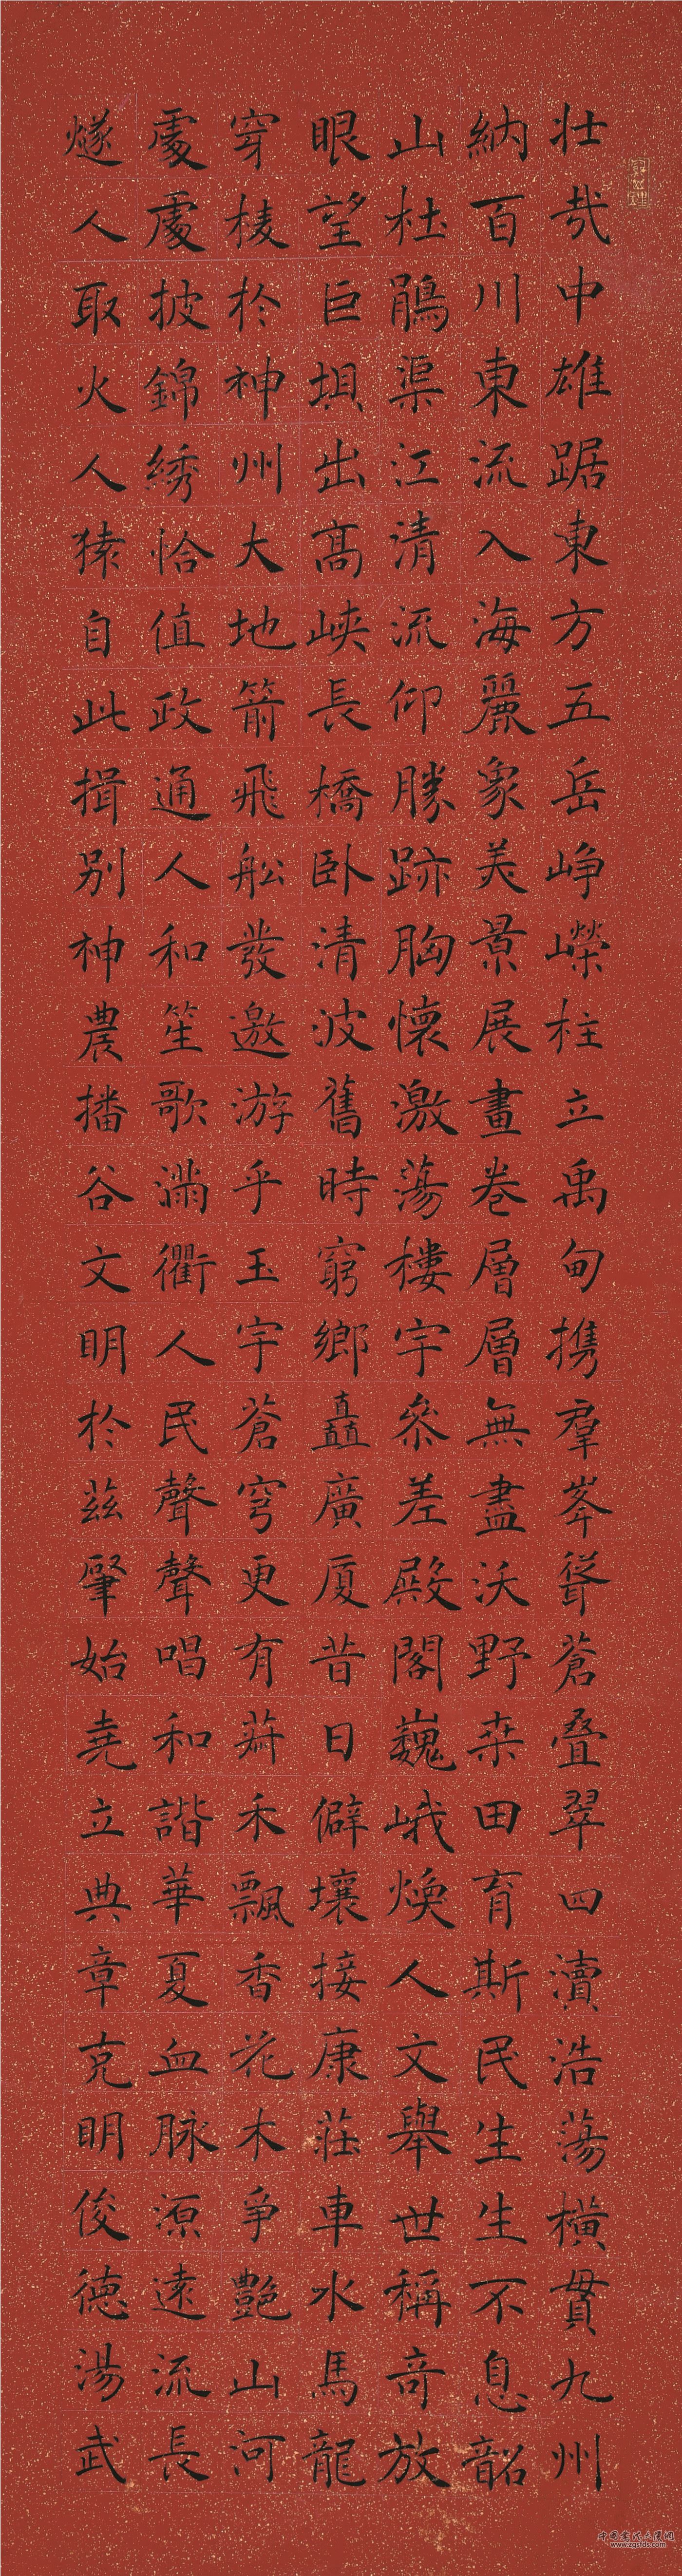 壯哉中雄踞東方五岳崢嶸柱立禹甸携羣峯聳蒼叠翠四瀆浩蕩橫貫九州
納百川東流入海麗象美景展畫卷層層無盡沃野桒田育斯民生生不息韶
山杜鵑渠江清流仰勝跡胸懷激蕩樓宇參差殿閣巍峨煥人文舉世稱奇放
眼望巨埧出高峽長橋卧清波舊時窮鄉矗廣厦昔日僻壤接康莊車水馬龍
穿梭於神州大地箭飛船發邀游乎玉宇蒼穹更有禾飄香花木爭艷山河
處處披錦綉恰值政通人和笙歌滿衢人民聲聲唱和諧華夏血脉源遠流長
燧人取火人猿自此揖別神農播谷文明於茲肇始堯立典章克明俊德湯武